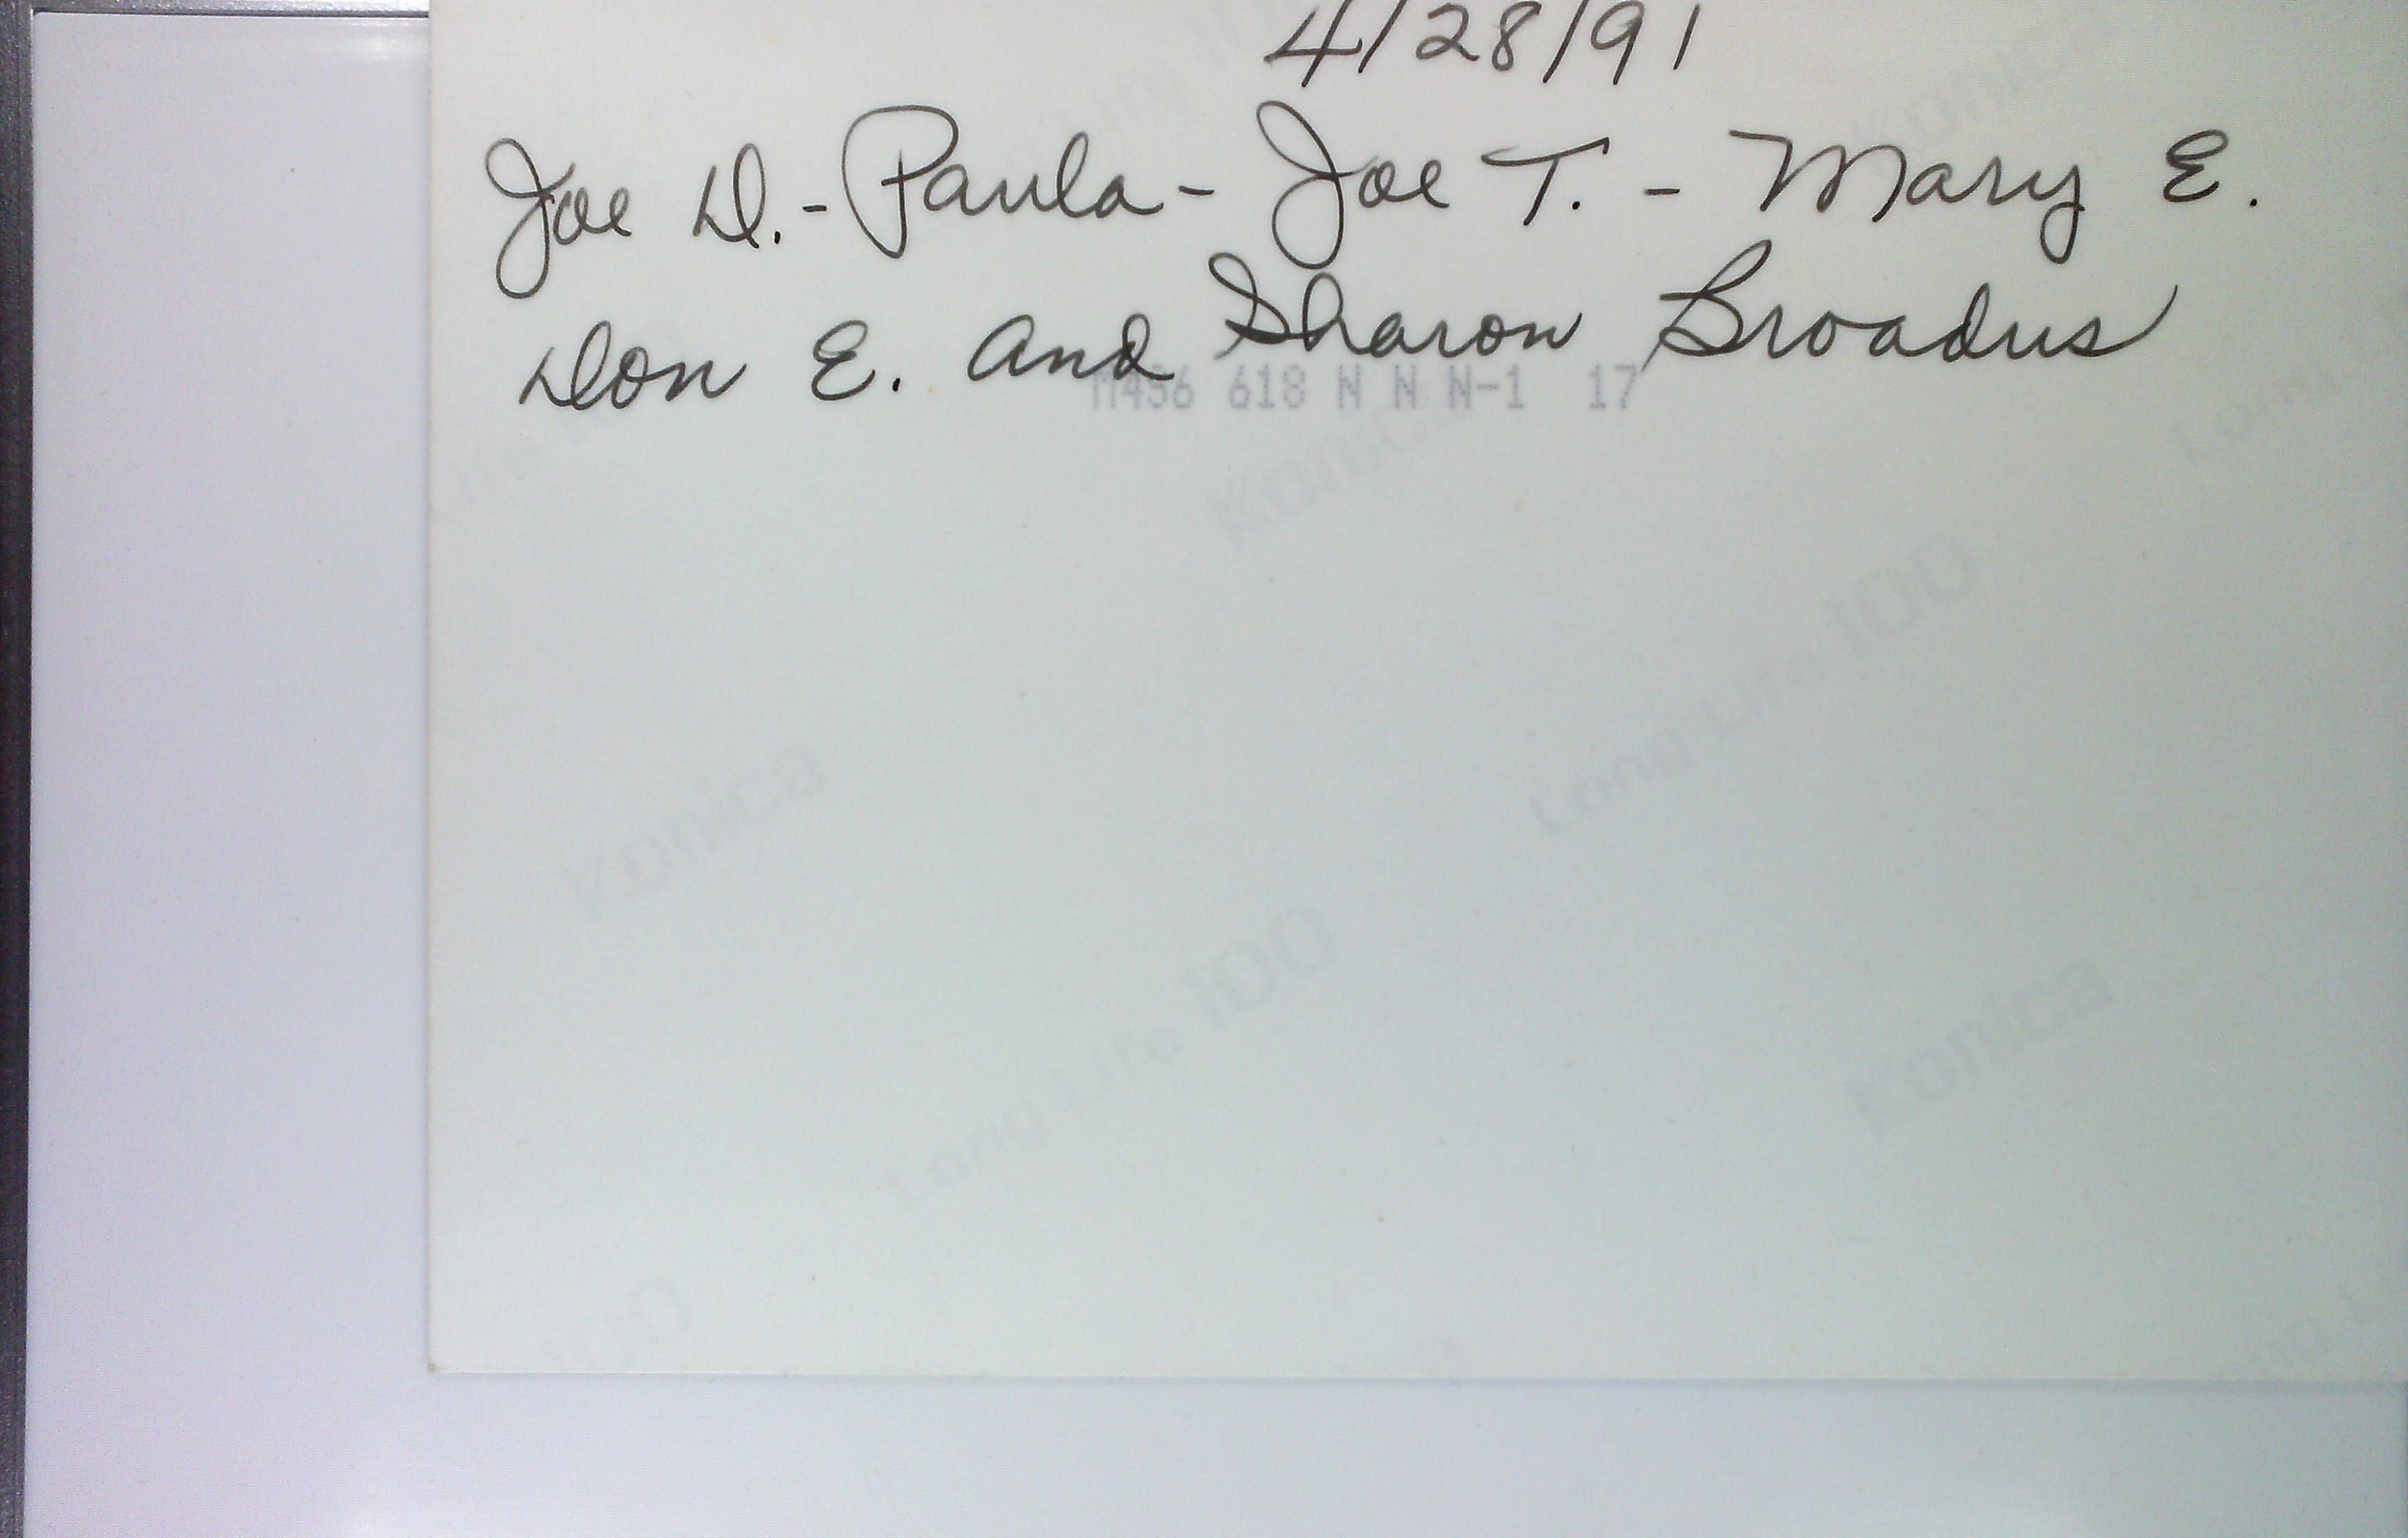 4/28/91
Joe D. - Paula - Joe T. - Mary E.
Don E. and Sharon Broadus
M456 618 N N N-1 17
Konica
Long Life 100
Konica
Long Life 100
Konica
Long Life 100
Konica
100